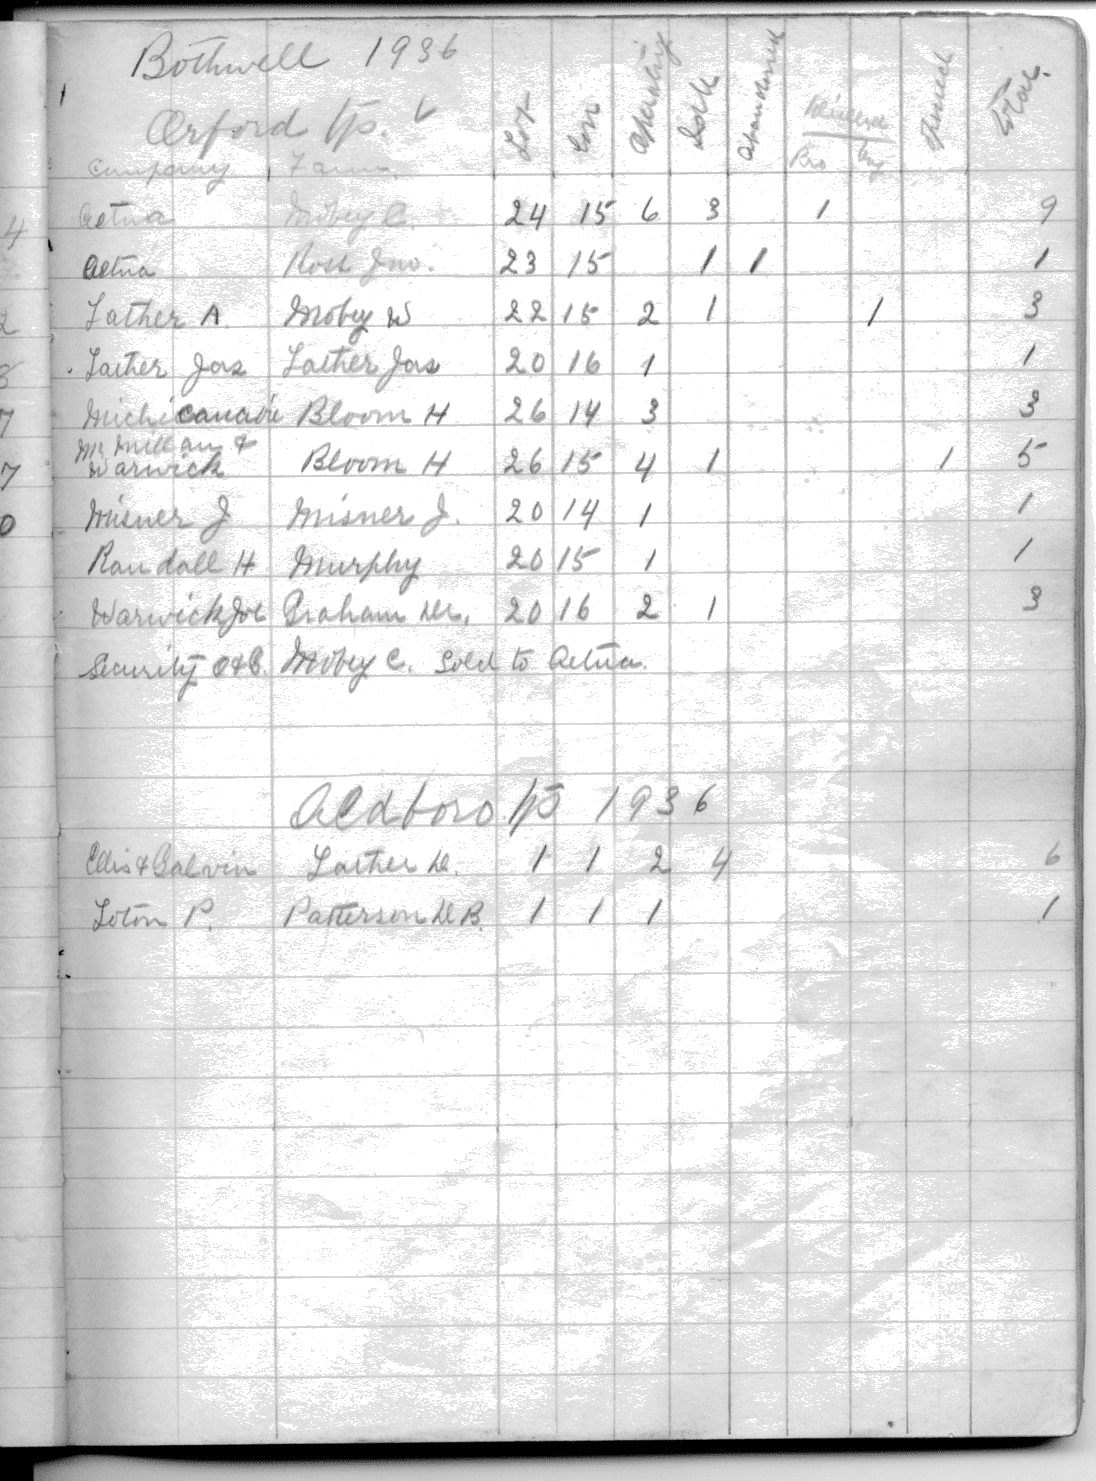 Bothwell 1936
Orford Tp.
Company Farm. Lot Con Operating Idle Abandoned Drilled Pro Dry Total
Aetna Mobey C. 24 15 6 3 1 9
Aetna Ross Jno. 23 15 1 1 1
Lather A. Mobey W 22 15 2 1 1 3
Lather Jas Lather Jas 20 16 1 1
Bloom H 26 14 3 3
McMillan &
Warwick Bloom H 26 15 4 1 1 5
Misner J Misner J. 20 14 1 1
Randall H Murphy 20 15 1 1
Warwick Joe Graham 20 16 2 1 3
Security O&G. Mobey C. Sold to Aetna.
Aldboro Tp 1936
Ellis & Galvin Lather D. 1 1 2 4 6
Loton P. Patterson D B. 1 1 1 1
4
2
8
7
7
0